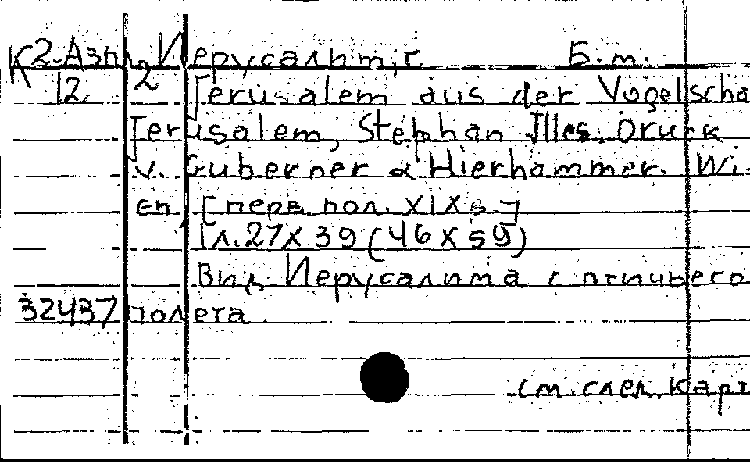 К2-Азп 2 Иерусалим, г. Б.м.
12.
Jerusalem aus der Vogelscha
Jerusalem, Stephan Illes. Druck
v. Guberner & Hierhammer. Wi-
en, [перв. пол. XIX в.]
1 л. 27 X 39 (46 X 59)
Вид Иерусалима с птичьего
32437 полета.
см. след. карт